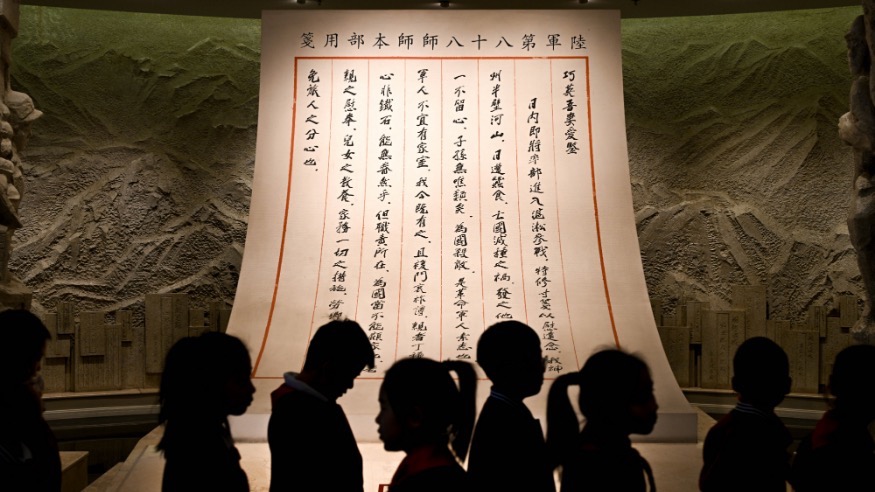 陸軍第八十八師師本部用箋
巧英吾妻愛鑒
日內即將率部進入滬淞參戰,特修寸箋以慰遠念。我神
州半壁河山,日遭蠶食,亡國滅種之禍,發之他
一不留心,子孫無噍類矣。為國殺敵,是革命軍人素志也
軍人不宜有家室,我今既有之,且後門衰祚薄,親者丁
心非鐵石,能無眷戀乎。但職責所在,為國當不能顧家
親之慰奉,兒女之教養,家務一切之措施,勞
免職人之分心也。